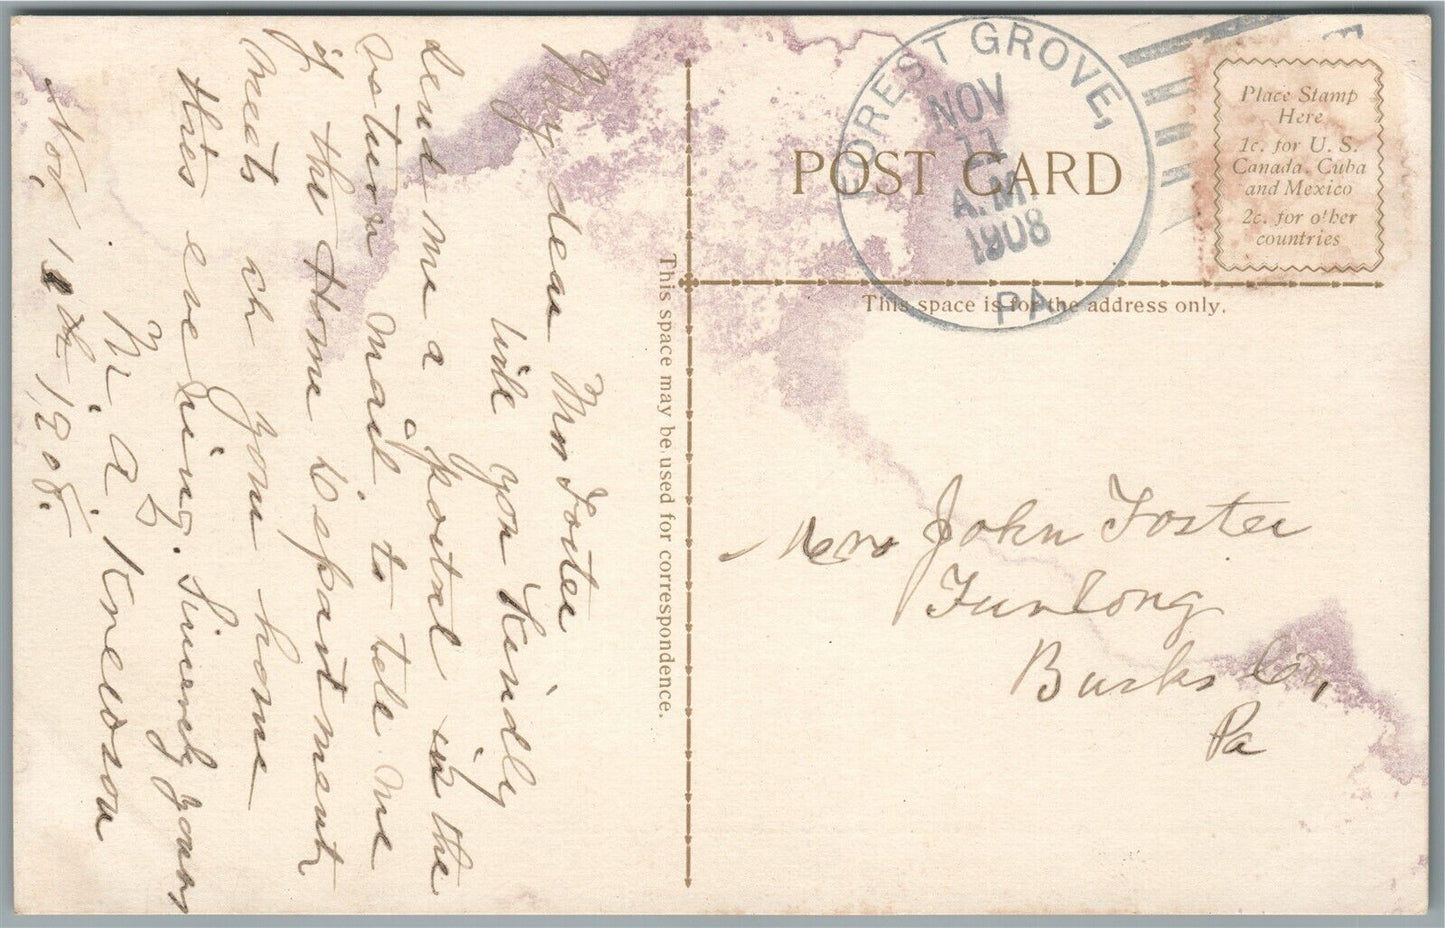 My dear Mrs Foster
Will you Kindly
send me a postal in the
return mail to tell me
if the Home Department
meets at your home
this evening. Sincerely yours
M. A.
Nov, 10th 1908.
This space may be used for correspondence.
FOREST GROVE,
NOV
11
A.M.
1908
PA
POST CARD
This space is for the address only.
Place Stamp
Here
1c. for U. S.
Canada, Cuba
and Mexico
2c. for other
countries
Mrs John Foster
Furlong
Bucks Co,
Pa